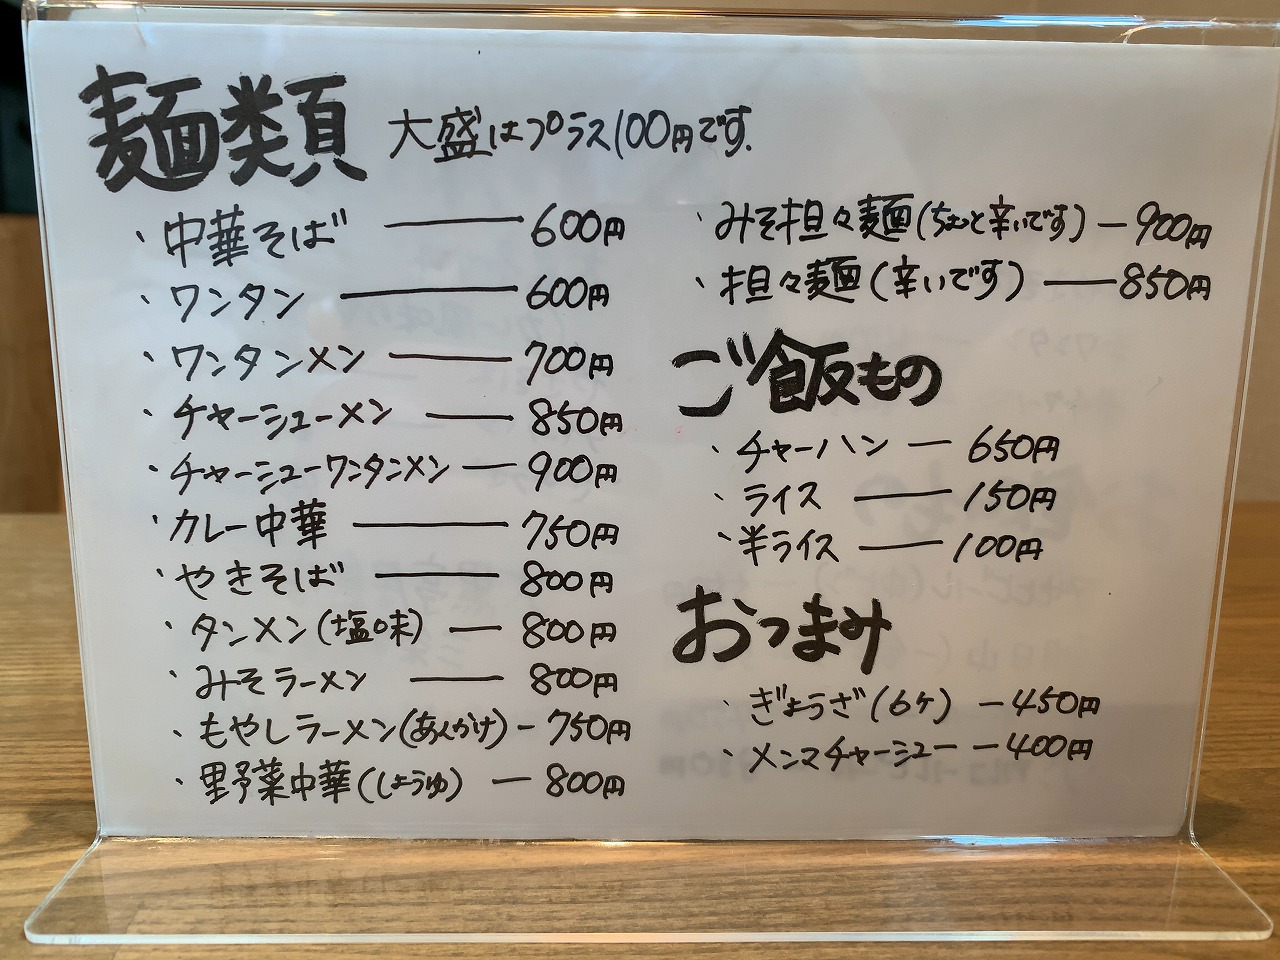 麺類 大盛はプラス100円です.
・中華そば ― 600円
・ワンタン ― 600円
・ワンタンメン ― 700円
・チャーシューメン ― 850円
・チャーシューワンタンメン ― 900円
・カレー中華 ― 750円
・やきそば ― 800円
・タンメン(塩味) ― 800円
・みそラーメン ― 800円
・もやしラーメン(あんかけ) ― 750円
・野菜中華(しょうゆ) ― 800円
・みそ担々麺(ちょっと辛いです) ― 900円
・担々麺(辛いです) ― 850円
ご飯もの
・チャーハン ― 650円
・ライス ― 150円
・半ライス ― 100円
おつまみ
・ぎょうざ(6ケ) ― 450円
・メンマチャーシュー ― 400円